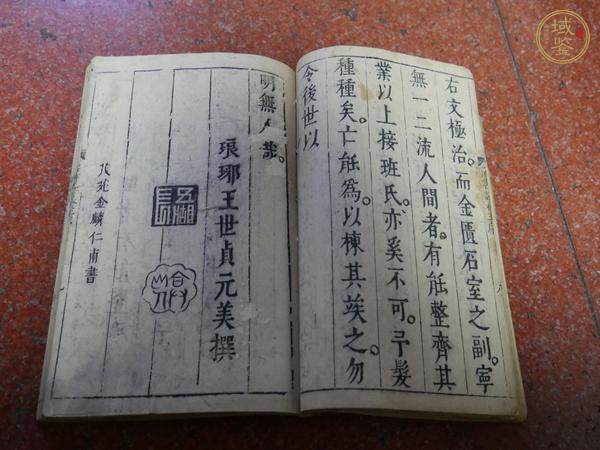 右文極治。而金匱石室之副。寧
無一二流人間者。有能整齊其
業以上接班氏。亦奚不可。予髮
種種矣。亡能為。以棟其竢之。勿
令後世以
明無人哉。
琅琊王世貞元美撰
五湖
長
茂苑金麟仁甫書
域鉴